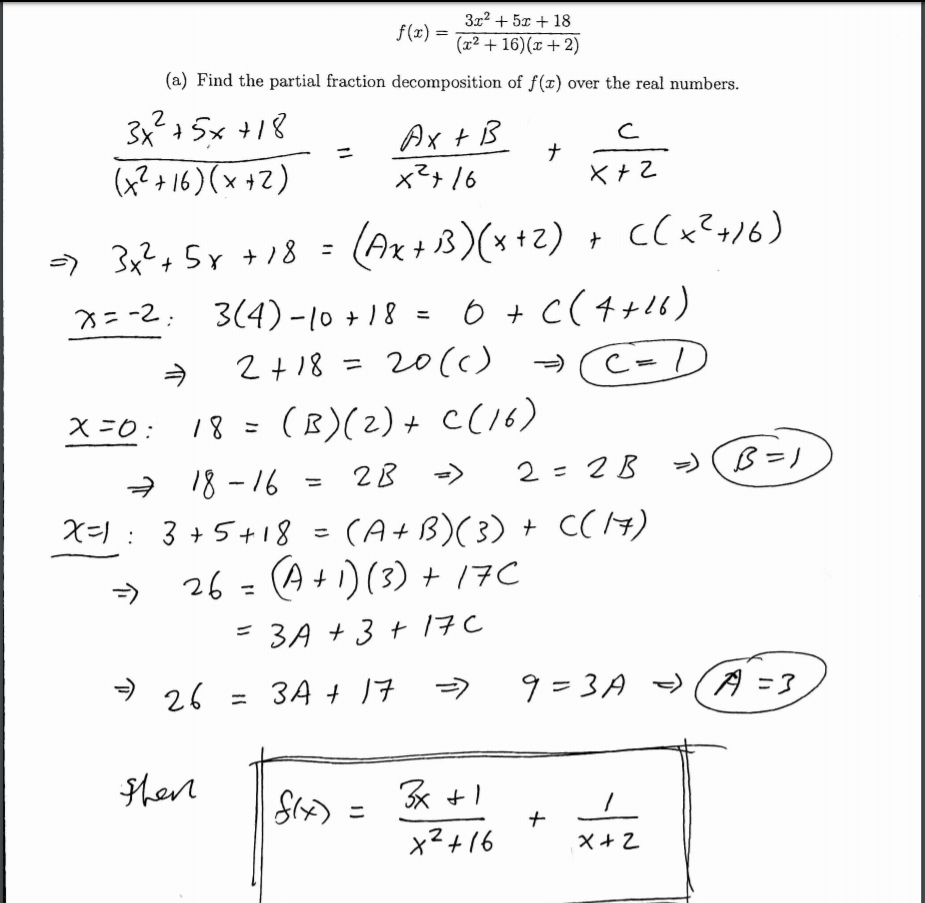 f(x) = (3x² + 5x + 18)/((x² + 16)(x + 2))
(a) Find the partial fraction decomposition of f(x) over the real numbers.
(3x² + 5x + 18)/((x² + 16)(x + 2)) = (Ax + B)/(x² + 16) + C/(x + 2)
⇒ 3x² + 5x + 18 = (Ax + B)(x + 2) + C(x² + 16)
x = -2: 3(4) - 10 + 18 = 0 + C(4 + 16)
⇒ 2 + 18 = 20(C) ⇒ C = 1
x = 0: 18 = (B)(2) + C(16)
⇒ 18 - 16 = 2B ⇒ 2 = 2B ⇒ B = 1
x = 1: 3 + 5 + 18 = (A + B)(3) + C(17)
⇒ 26 = (A + 1)(3) + 17C
= 3A + 3 + 17C
⇒ 26 = 3A + 17 ⇒ 9 = 3A ⇒ A = 3
then f(x) = (3x + 1)/(x² + 16) + 1/(x + 2)